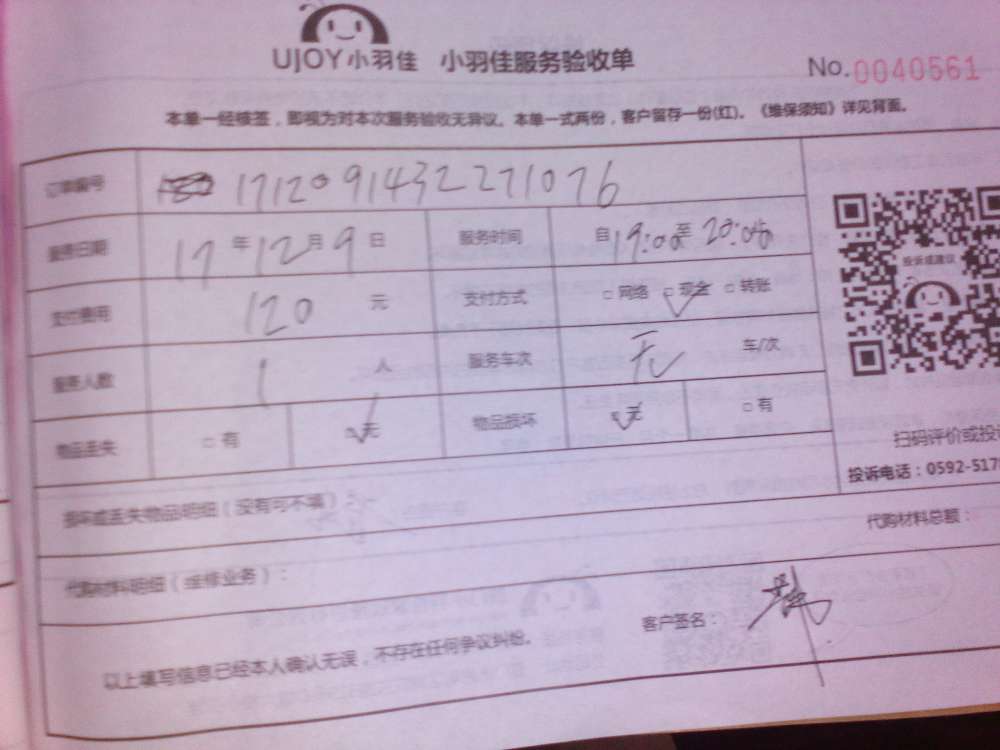 UJOY小羽佳 小羽佳服务验收单
No.0040561
本单一经核签，即视为对本次服务验收无异议。本单一式两份，客户留存一份(红)。《维保须知》详见背面。
订单编号 1712091432271076
服务日期 17年12月9日 服务时间 自19:00至20:00
支付费用 120元 支付方式 □网络 □现金 □转账
服务人数 1人 服务车次 无 车/次
物品丢失 □有 □无 物品损坏 □无 □有
投诉或建议
扫码评价或投诉
投诉电话：0592-517
损坏或丢失物品明细（没有可不填）：
代购材料明细（维修业务）：
代购材料总额：
以上填写信息已经本人确认无误，不存在任何争议纠纷。
客户签名：